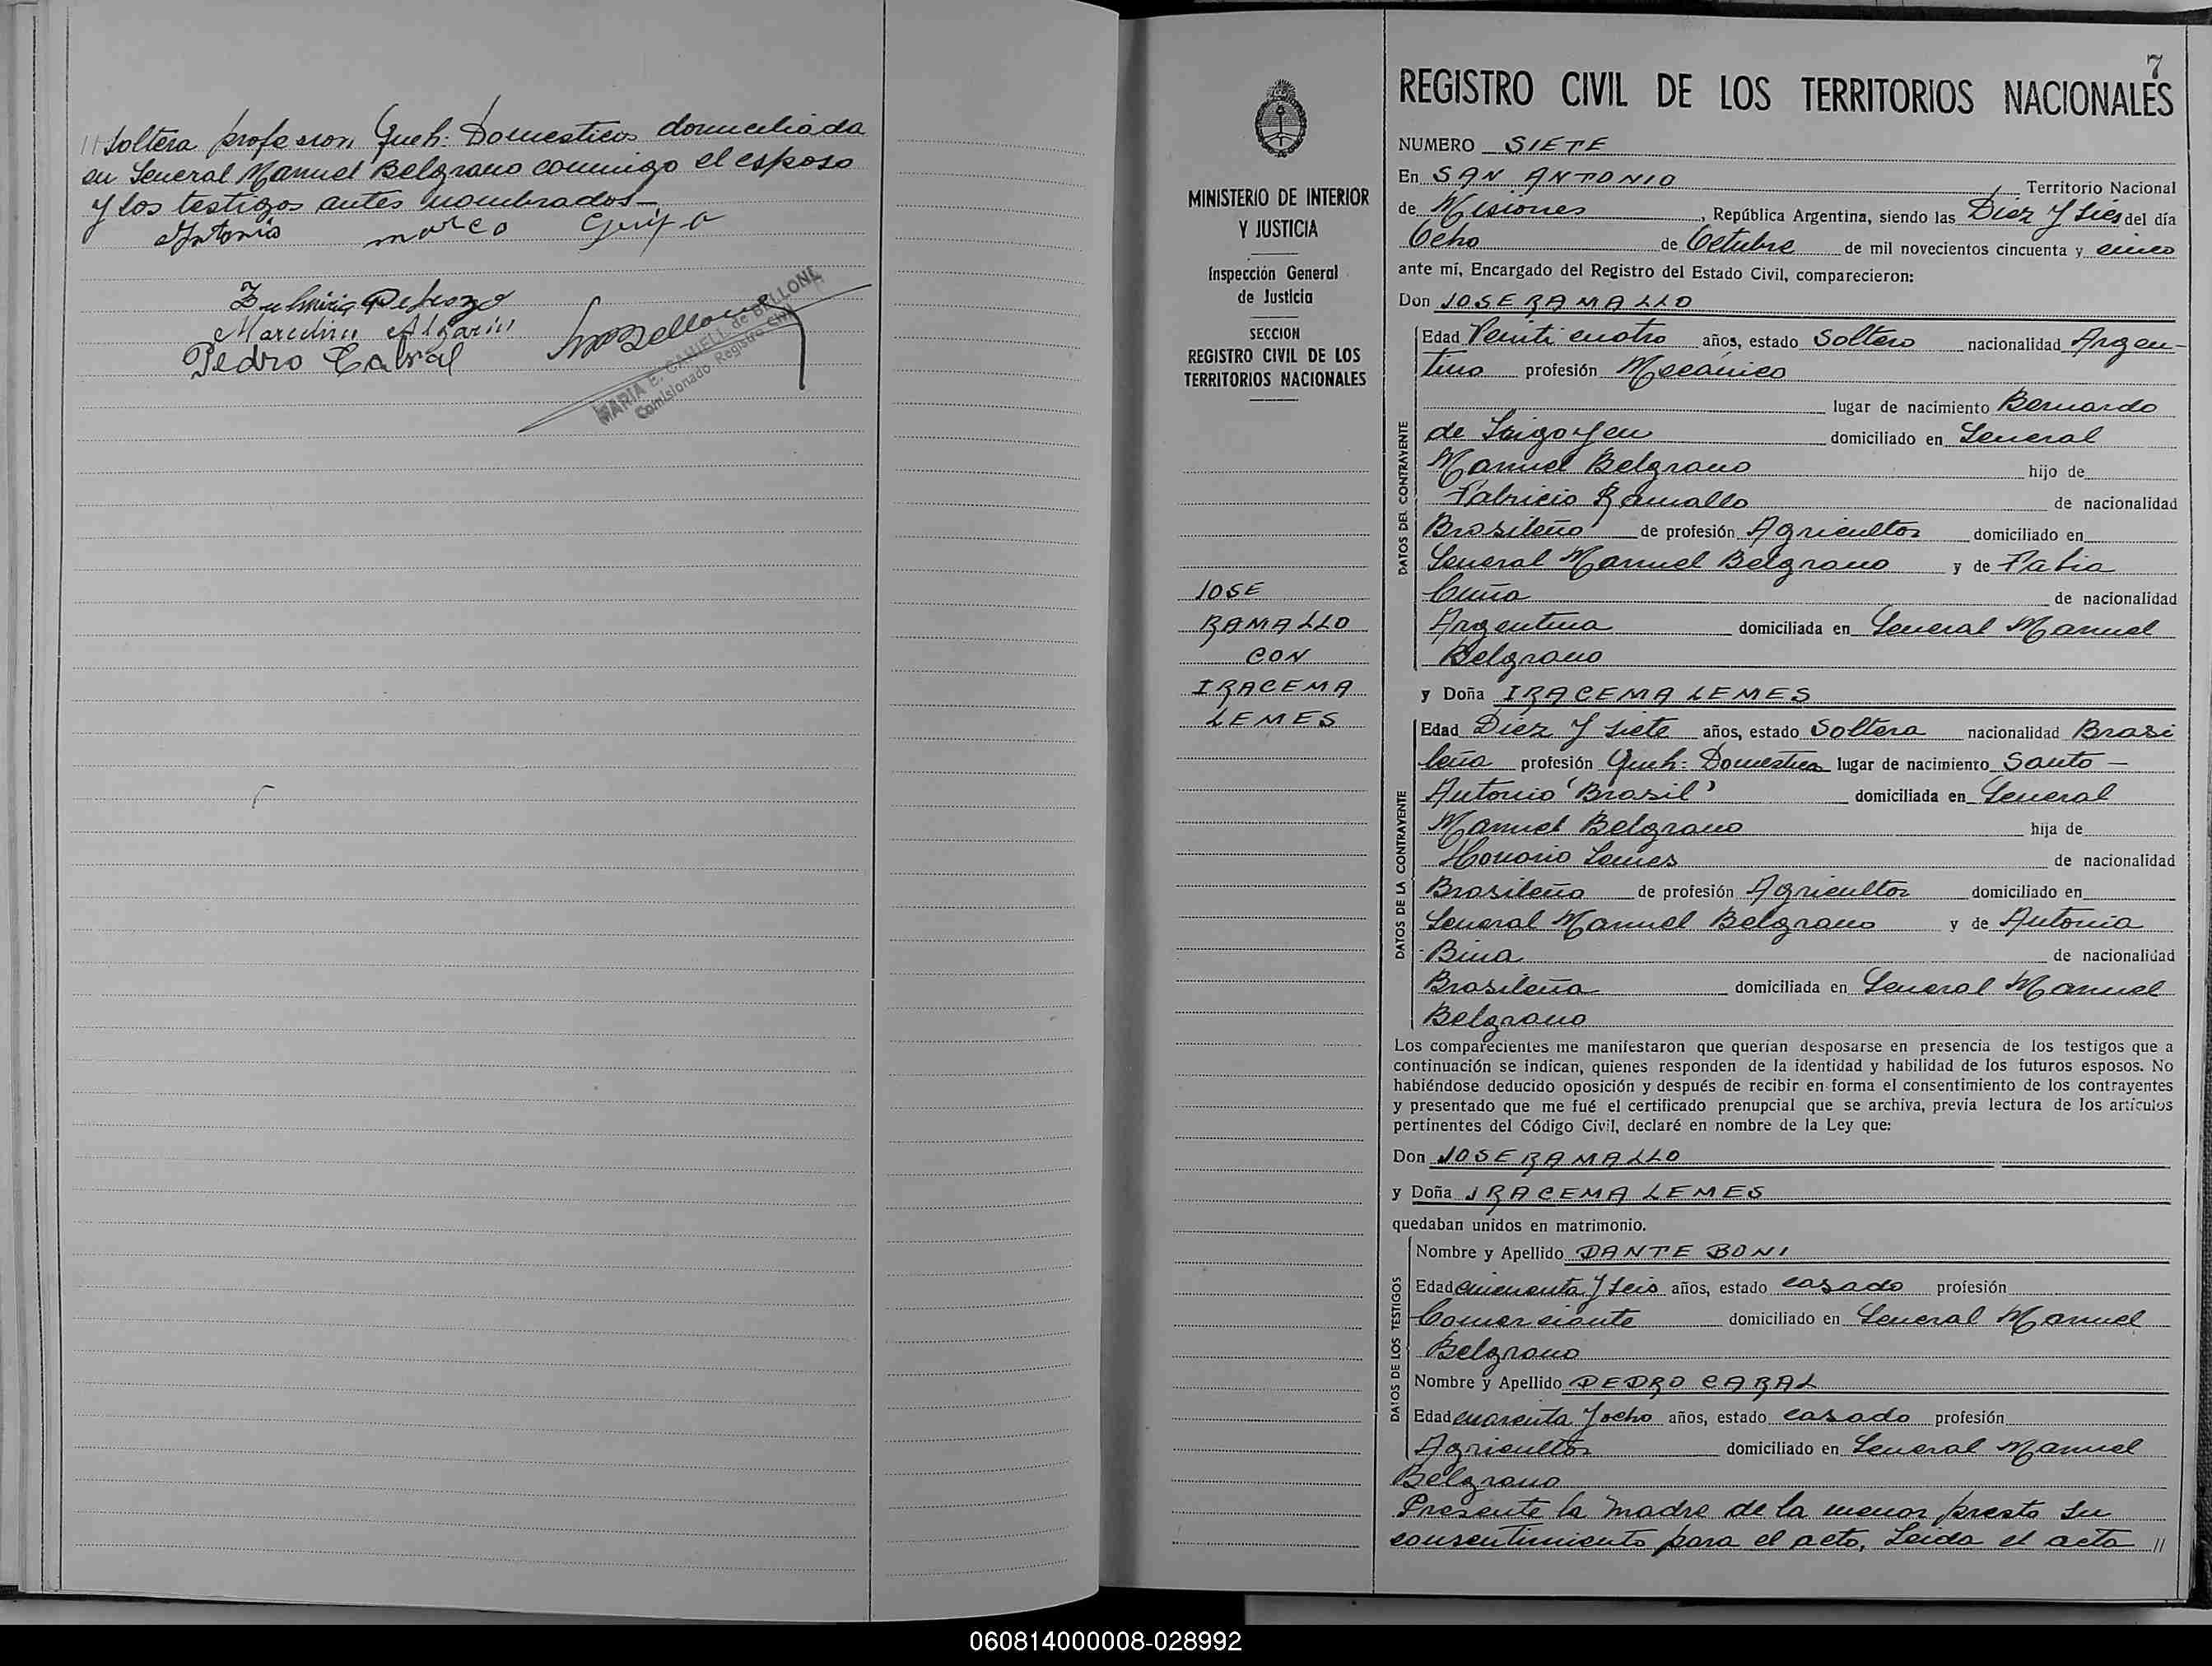 // soltera profesion Queh: Domesticos domiciliada
en General Manuel Belgrano conmigo el esposo
y los testigos antes nombrados—
Antonio marco
Marculino
Pedro Cabral
MARIA E. CANUELL de BELLONE
Comisionado Registro Civil
MINISTERIO DE INTERIOR
Y JUSTICIA
Inspección General
de Justicia
SECCION
REGISTRO CIVIL DE LOS
TERRITORIOS NACIONALES
JOSE
RAMALLO
CON
IRACEMA
LEMES
7
REGISTRO CIVIL DE LOS TERRITORIOS NACIONALES
NUMERO SIETE
En SAN ANTONIO Territorio Nacional
de Misiones, República Argentina, siendo las Diez y Sies del día
Ocho de Octubre de mil novecientos cincuenta y cinco
ante mí, Encargado del Registro del Estado Civil, comparecieron:
Don JOSE RAMALLO
DATOS DEL CONTRAYENTE
Edad Veinti cuatro años, estado Soltero nacionalidad Argen-
tino profesión Mecánico
lugar de nacimiento Bernardo
de Irigoyen domiciliado en General
Manuel Belgrano hijo de
Fabricio Ramallo de nacionalidad
Brasileño de profesión Agricultor domiciliado en
General Manuel Belgrano y de Fabia
Cuña de nacionalidad
Argentina domiciliada en General Manuel
Belgrano
y Doña IRACEMA LEMES
DATOS DE LA CONTRAYENTE
Edad Diez y siete años, estado Soltera nacionalidad Brasi
leña profesión Queh: Domestica lugar de nacimiento Santo —
Antonio 'Brasil' domiciliada en General
Manuel Belgrano hija de
Honorio Lemes de nacionalidad
Brasileño de profesión Agricultor domiciliado en
General Manuel Belgrano y de Antonia
Bina de nacionalidad
Brasileña domiciliada en General Manuel
Belgrano
Los comparecientes me manifestaron que querían desposarse en presencia de los testigos que a
continuación se indican, quienes responden de la identidad y habilidad de los futuros esposos. No
habiéndose deducido oposición y después de recibir en forma el consentimiento de los contrayentes
y presentado que me fué el certificado prenupcial que se archiva, previa lectura de los artículos
pertinentes del Código Civil, declaré en nombre de la Ley que:
Don JOSE RAMALLO
y Doña IRACEMA LEMES
quedaban unidos en matrimonio.
DATOS DE LOS TESTIGOS
Nombre y Apellido DANTE BONI
Edad cincuenta y seis años, estado casado profesión
Comerciante domiciliado en General Manuel
Belgrano
Nombre y Apellido PEDRO CABAL
Edad cuarenta y ocho años, estado casado profesión
Agricultor domiciliado en General Manuel
Belgrano
Presente la madre de la menor presto su
consentimiento para el acto, Leida el acta //
060814000008-028992